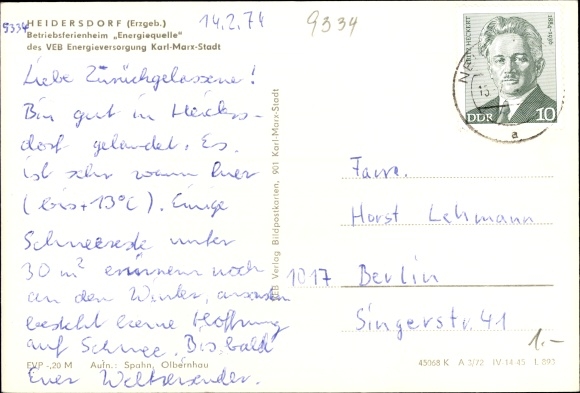 HEIDERSDORF (Erzgeb.)
Betriebsferienheim „Energiequelle"
des VEB Energieversorgung Karl-Marx-Stadt
9334
14.2.74
9334
Liebe Zurückgelassene!
Bin gut in Heiders-
dorf gelandet. Es
ist sehr warm hier
(bis +13°C). Einige
Schneereste unter
30 m² erinnern noch
an den Winter, ansonsten
besteht keine Hoffnung
auf Schnee. Bis bald
Euer Weltreisender.
EVP -,20 M Aufn.: Spahn, Olbernhau
VEB Verlag Bildpostkarten, 901 Karl-Marx-Stadt
1884-1936
DDR 10
a
Fam.
Horst Lehmann
1017 Berlin
Singerstr. 41
1.-
45068 K A 3/72 IV-14-45 L 893